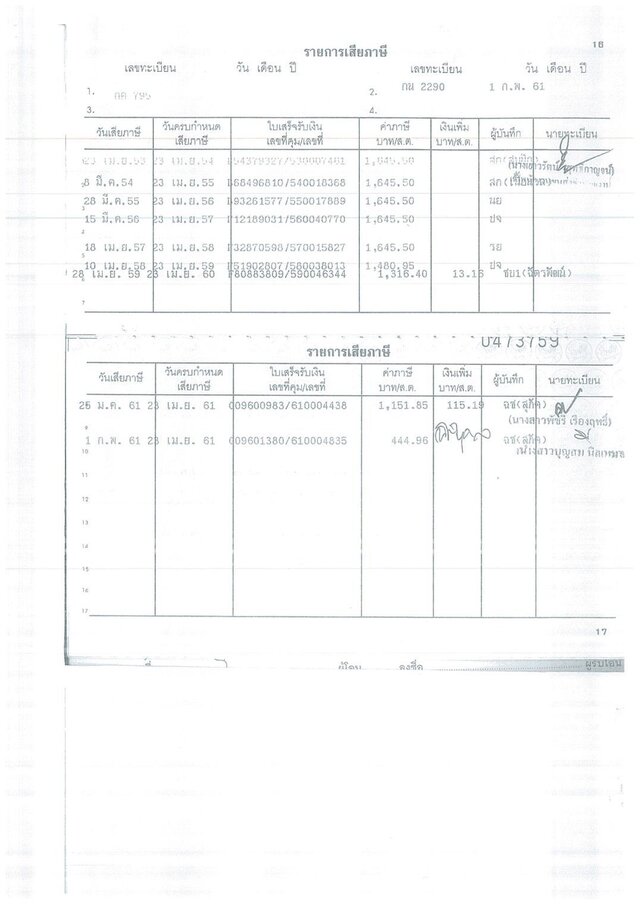 16
รายการเสียภาษี
เลขทะเบียน วัน เดือน ปี เลขทะเบียน วัน เดือน ปี
1. กค 795 2. กน 2290 1 ก.พ. 61
3. 4.
วันเสียภาษี วันครบกำหนดเสียภาษี ใบเสร็จรับเงิน เลขที่คุม/เลขที่ ค่าภาษี บาท/ส.ต. เงินเพิ่ม บาท/ส.ต. ผู้บันทึก นายทะเบียน
23 เม.ย.53 23 เม.ย.54 /530007401 1,645.50
8 มี.ค.54 23 เม.ย.55 68496810/540018368 1,645.50
28 มี.ค.55 23 เม.ย.56 93261577/550017889 1,645.50 นย
15 มี.ค.56 23 เม.ย.57 12189031/560040770 1,645.50 ปจ
18 เม.ย.57 23 เม.ย.58 32870598/570015827 1,645.50 วย
10 เม.ย.58 23 เม.ย.59 51902807/580038013 1,480.95 ปจ
28 เม.ย. 59 23 เม.ย. 60 80883809/590046344 1,316.40 13.16 ชบ1(ฉัตรพัฒน์)
7
0473759
รายการเสียภาษี
วันเสียภาษี วันครบกำหนดเสียภาษี ใบเสร็จรับเงิน เลขที่คุม/เลขที่ ค่าภาษี บาท/ส.ต. เงินเพิ่ม บาท/ส.ต. ผู้บันทึก นายทะเบียน
25 ม.ค. 61 23 เม.ย. 61 009600983/610004438 1,151.85 115.19 ฉช(สุกิจ)
(นางสาวพัชรี เรืองฤทธิ์)
1 ก.พ. 61 23 เม.ย. 61 009601380/610004835 444.96 ฉช(สุกิจ)
10 นางสาวบุญสม
11
12
13
14
15
16
17
17
ผู้โอน ลงชื่อ ผู้รับโอน